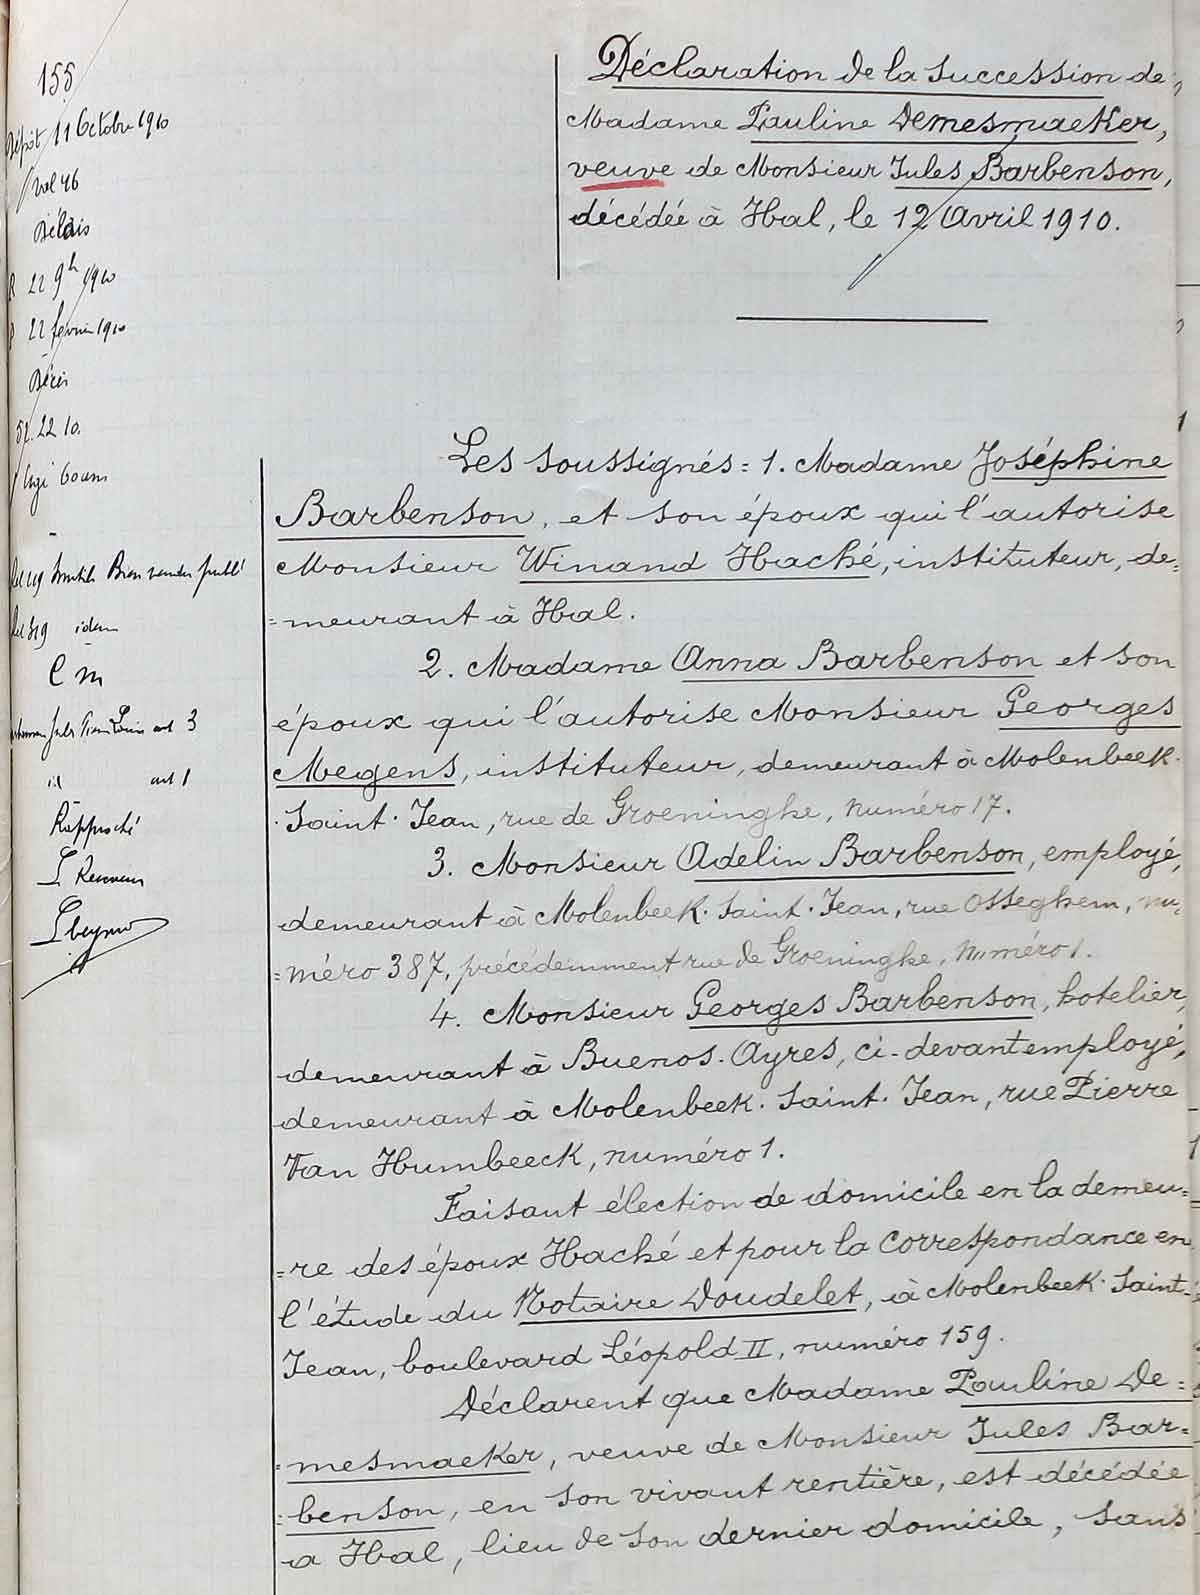 155
Dépôt 11 Octobre 1910
vol 46
Délais
22 9b 1910
22 fevrier 1910
Décès
22 10.
idem
C M
art 3
art 1
Rapproché
Déclaration de la succession de
Madame Pauline Demesmaeker,
veuve de Monsieur Jules Barbenson,
décédée à Hal, le 12 Avril 1910.
Les soussignés = 1. Madame Joséphine
Barbenson, et son époux qui l'autorise
Monsieur Winand Haché, instituteur, de-
=meurant à Hal.
2. Madame Anna Barbenson et son
époux qui l'autorise Monsieur Georges
Megens, instituteur, demeurant à Molenbeek-
-Saint-Jean, rue de Groeninghe, numéro 17.
3. Monsieur Adelin Barbenson, employé,
demeurant à Molenbeek-Saint-Jean, rue Osseghem, nu-
=méro 387, précédemment rue de Groeninghe, numéro 1.
4. Monsieur Georges Barbenson, hotelier,
demeurant à Buenos-Ayres, ci-devant employé,
demeurant à Molenbeek-Saint-Jean, rue Pierre
Van Humbeeck, numéro 1.
Faisant élection de domicile en la demeu=
=re des époux Haché et pour la correspondance en
l'étude du Notaire Doudelet, à Molenbeek-Saint-
Jean, boulevard Léopold II, numéro 159.
Déclarent que Madame Pauline De=
=mesmaeker, veuve de Monsieur Jules Bar=
=benson, en son vivant rentière, est décédée
a Hal, lieu de son dernier domicile, sans